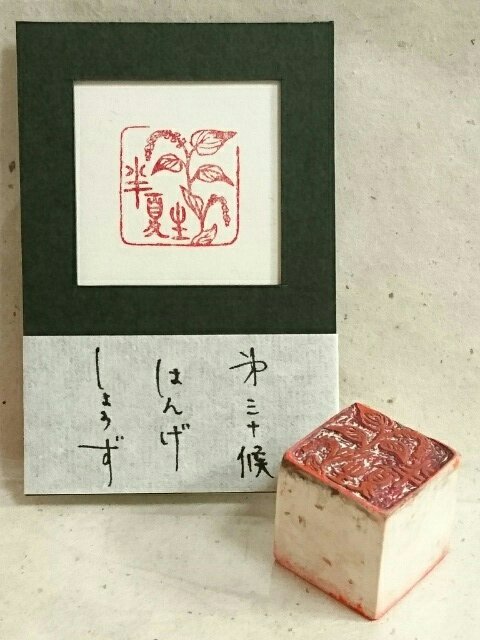 半夏生
第三十候
はんげ
しょうず